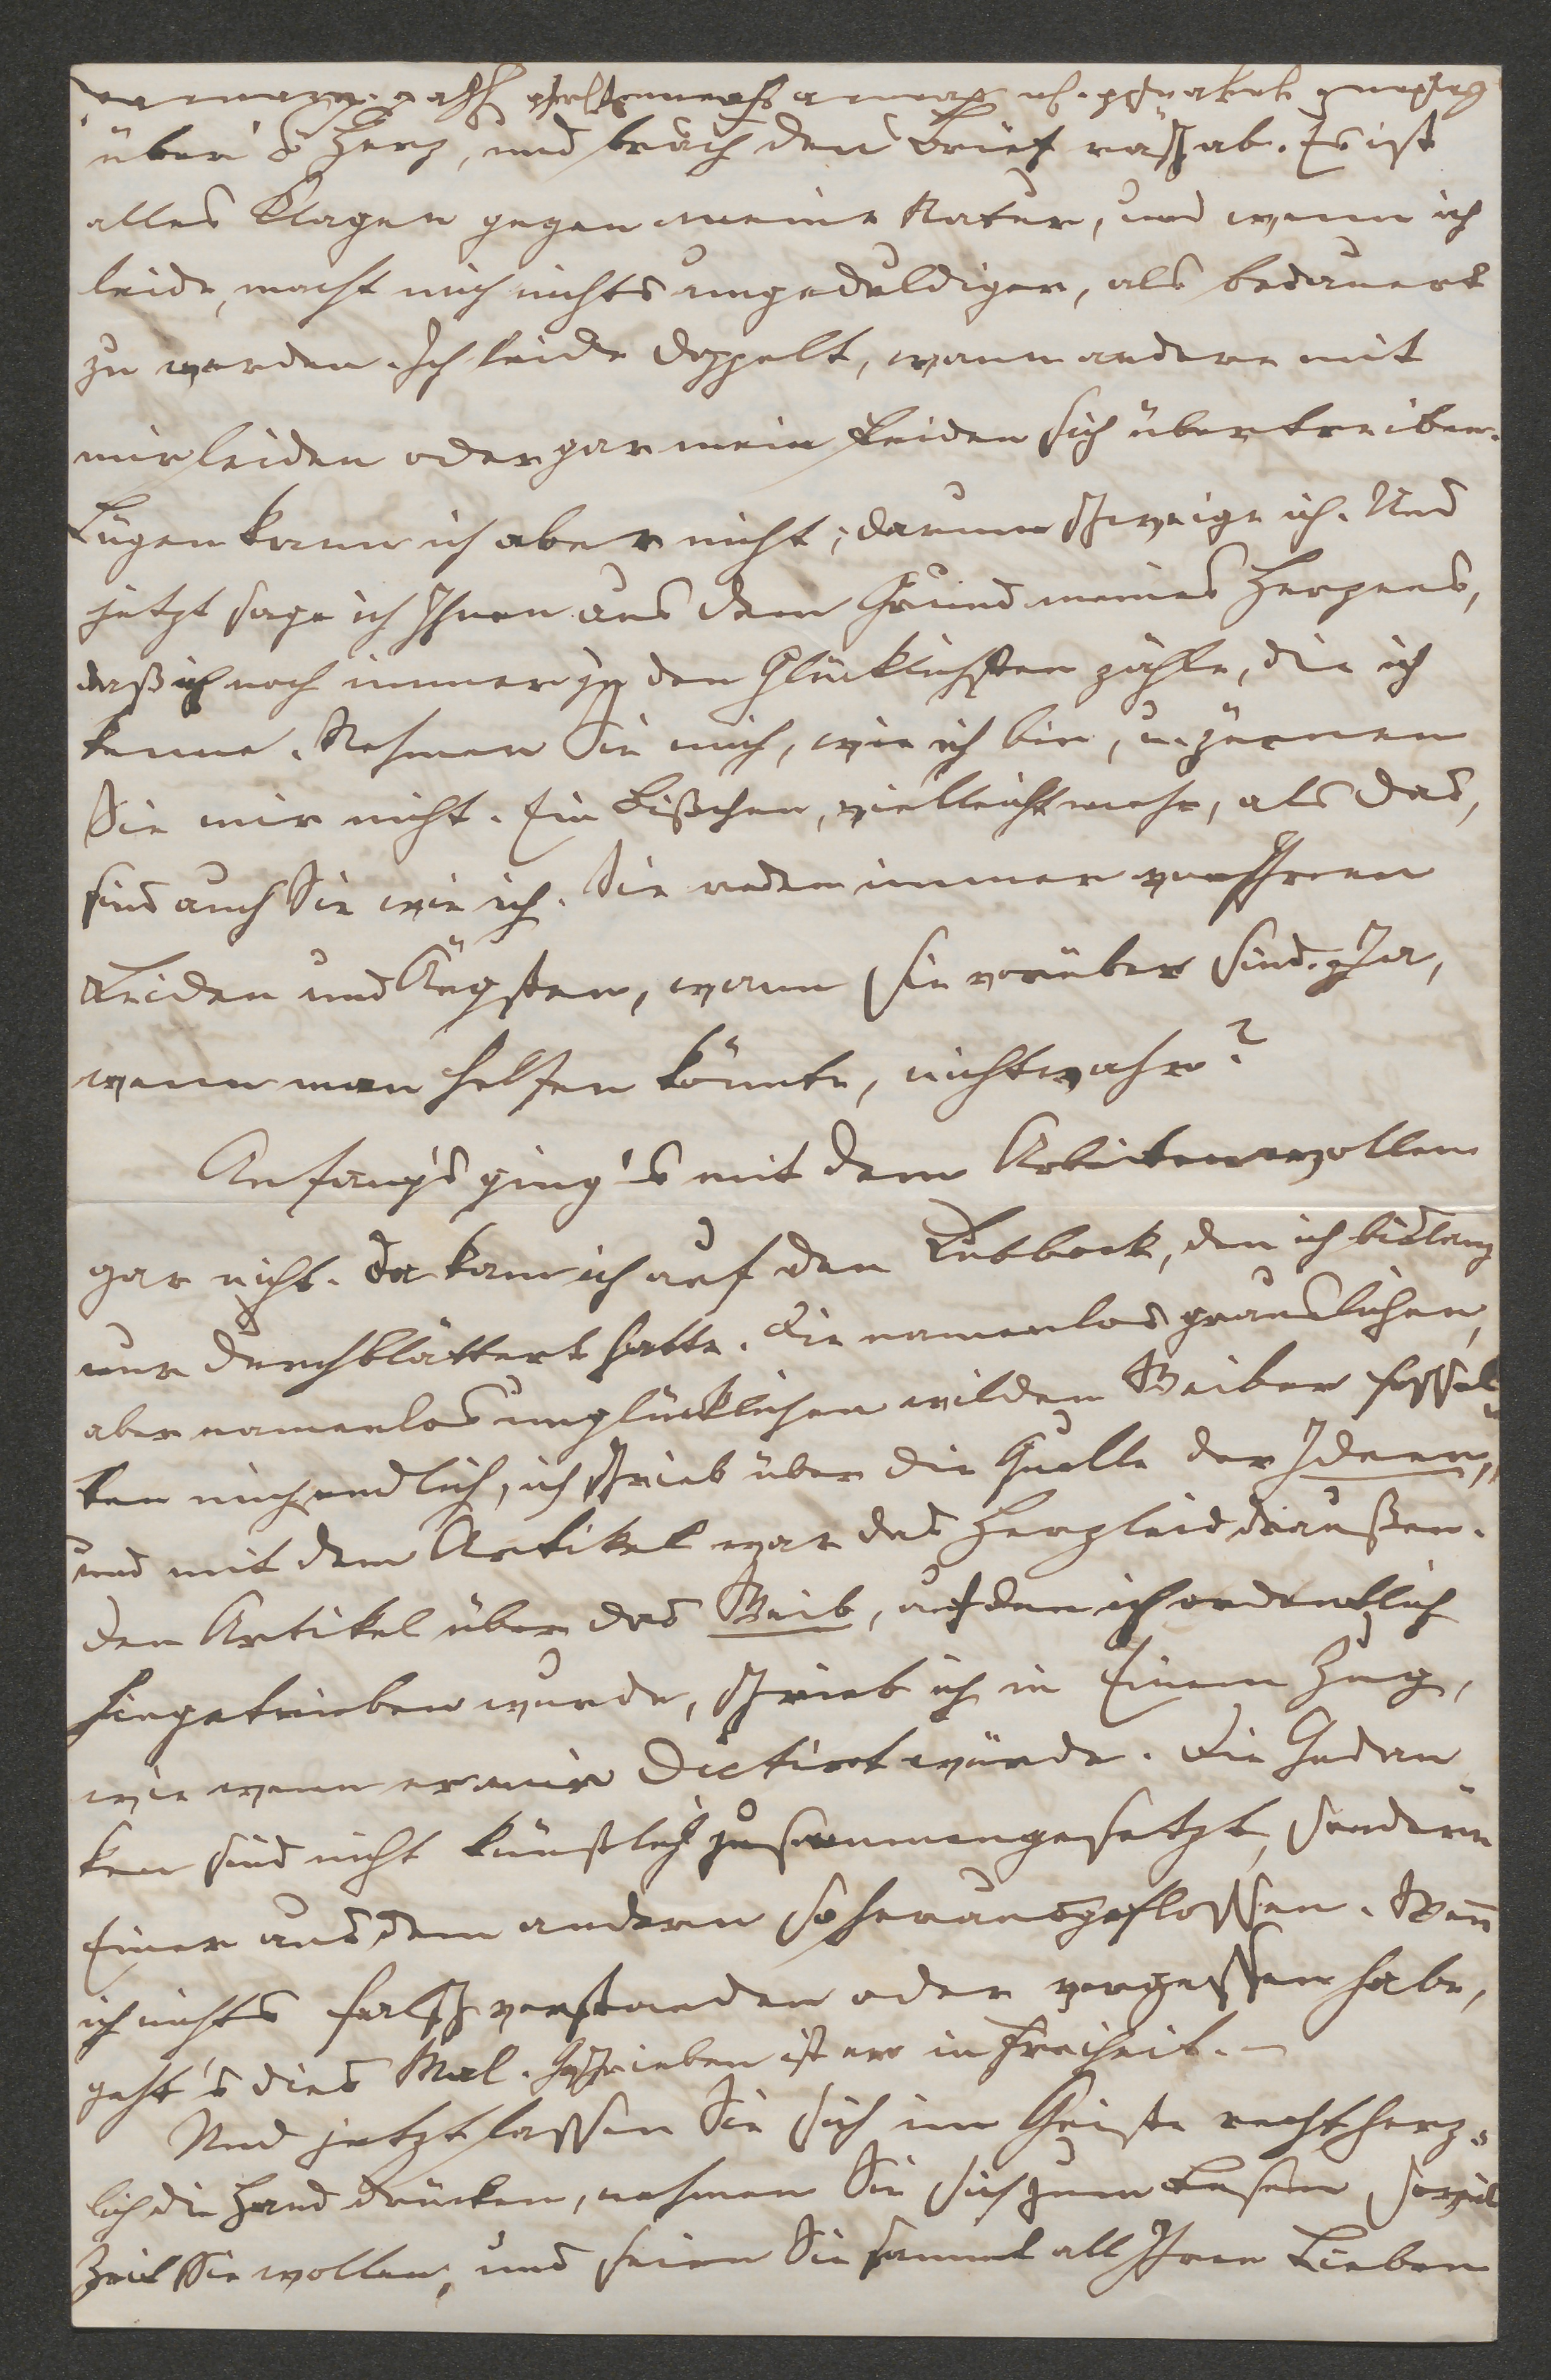 über's Herz, und brach den Brief rasch ab. Es ist
alles Klagen gegen meine Natur, und wenn ich
leide, macht mich nichts ungeduldiger, als bedauert
zu werden. Ich leide doppelt, wann andere mit
mir leiden oder gar mein Leiden sich übertreiben.
Lügen kann ich aber nicht; darum schweige ich. Und
jetzt sage ich Ihnen aus dem Grund meines Herzens,
daß ich noch immer zu den Glücklichsten zähle, die ich
kenne. Nehmen Sie mich, wie ich bin, u. zürnen
Sie mir nicht. Ein Bißchen, vielleicht mehr, als das,
sind auch Sie wie ich. Sie reden immer von Ihren
Leiden und Ängsten, wann sie vorüber sind. Ja,
wenn man helfen könnte, nicht wahr?
Anfangs ging's mit dem Arbeitenwollen
gar nicht. Da kam ich auf den Lubbock, den ich bislang
nur durchblättert hatte. Die namenlos grauslichen,
aber namenlos unglücklichen wilden Weiber fessel-
ten mich endlich, ich schrieb über die Quelle der Ideen,
und mit dem Artikel war das Herzleid draußen.
Den Artikel über das Weib, auf den ich ordentlich
hingetrieben wurde, schrieb ich in Einem Zug,
wie wenn er mir dictirt würde. Die Gedan
ken sind nicht künstlich zusammengesetzt, sondern
Einer aus dem andern so herausgeflossen. Wenn
ich nichts falsch verstanden oder vergessen habe,
geht's dies Mal. Geschrieben ist er in Freiheit. —
Und jetzt lassen Sie sich im Geiste recht herz-
lich die Hand drücken, nehmen Sie sich zum Lesen soviel
Zeit Sie wollen, und seien Sie sammt all Ihren Lieben